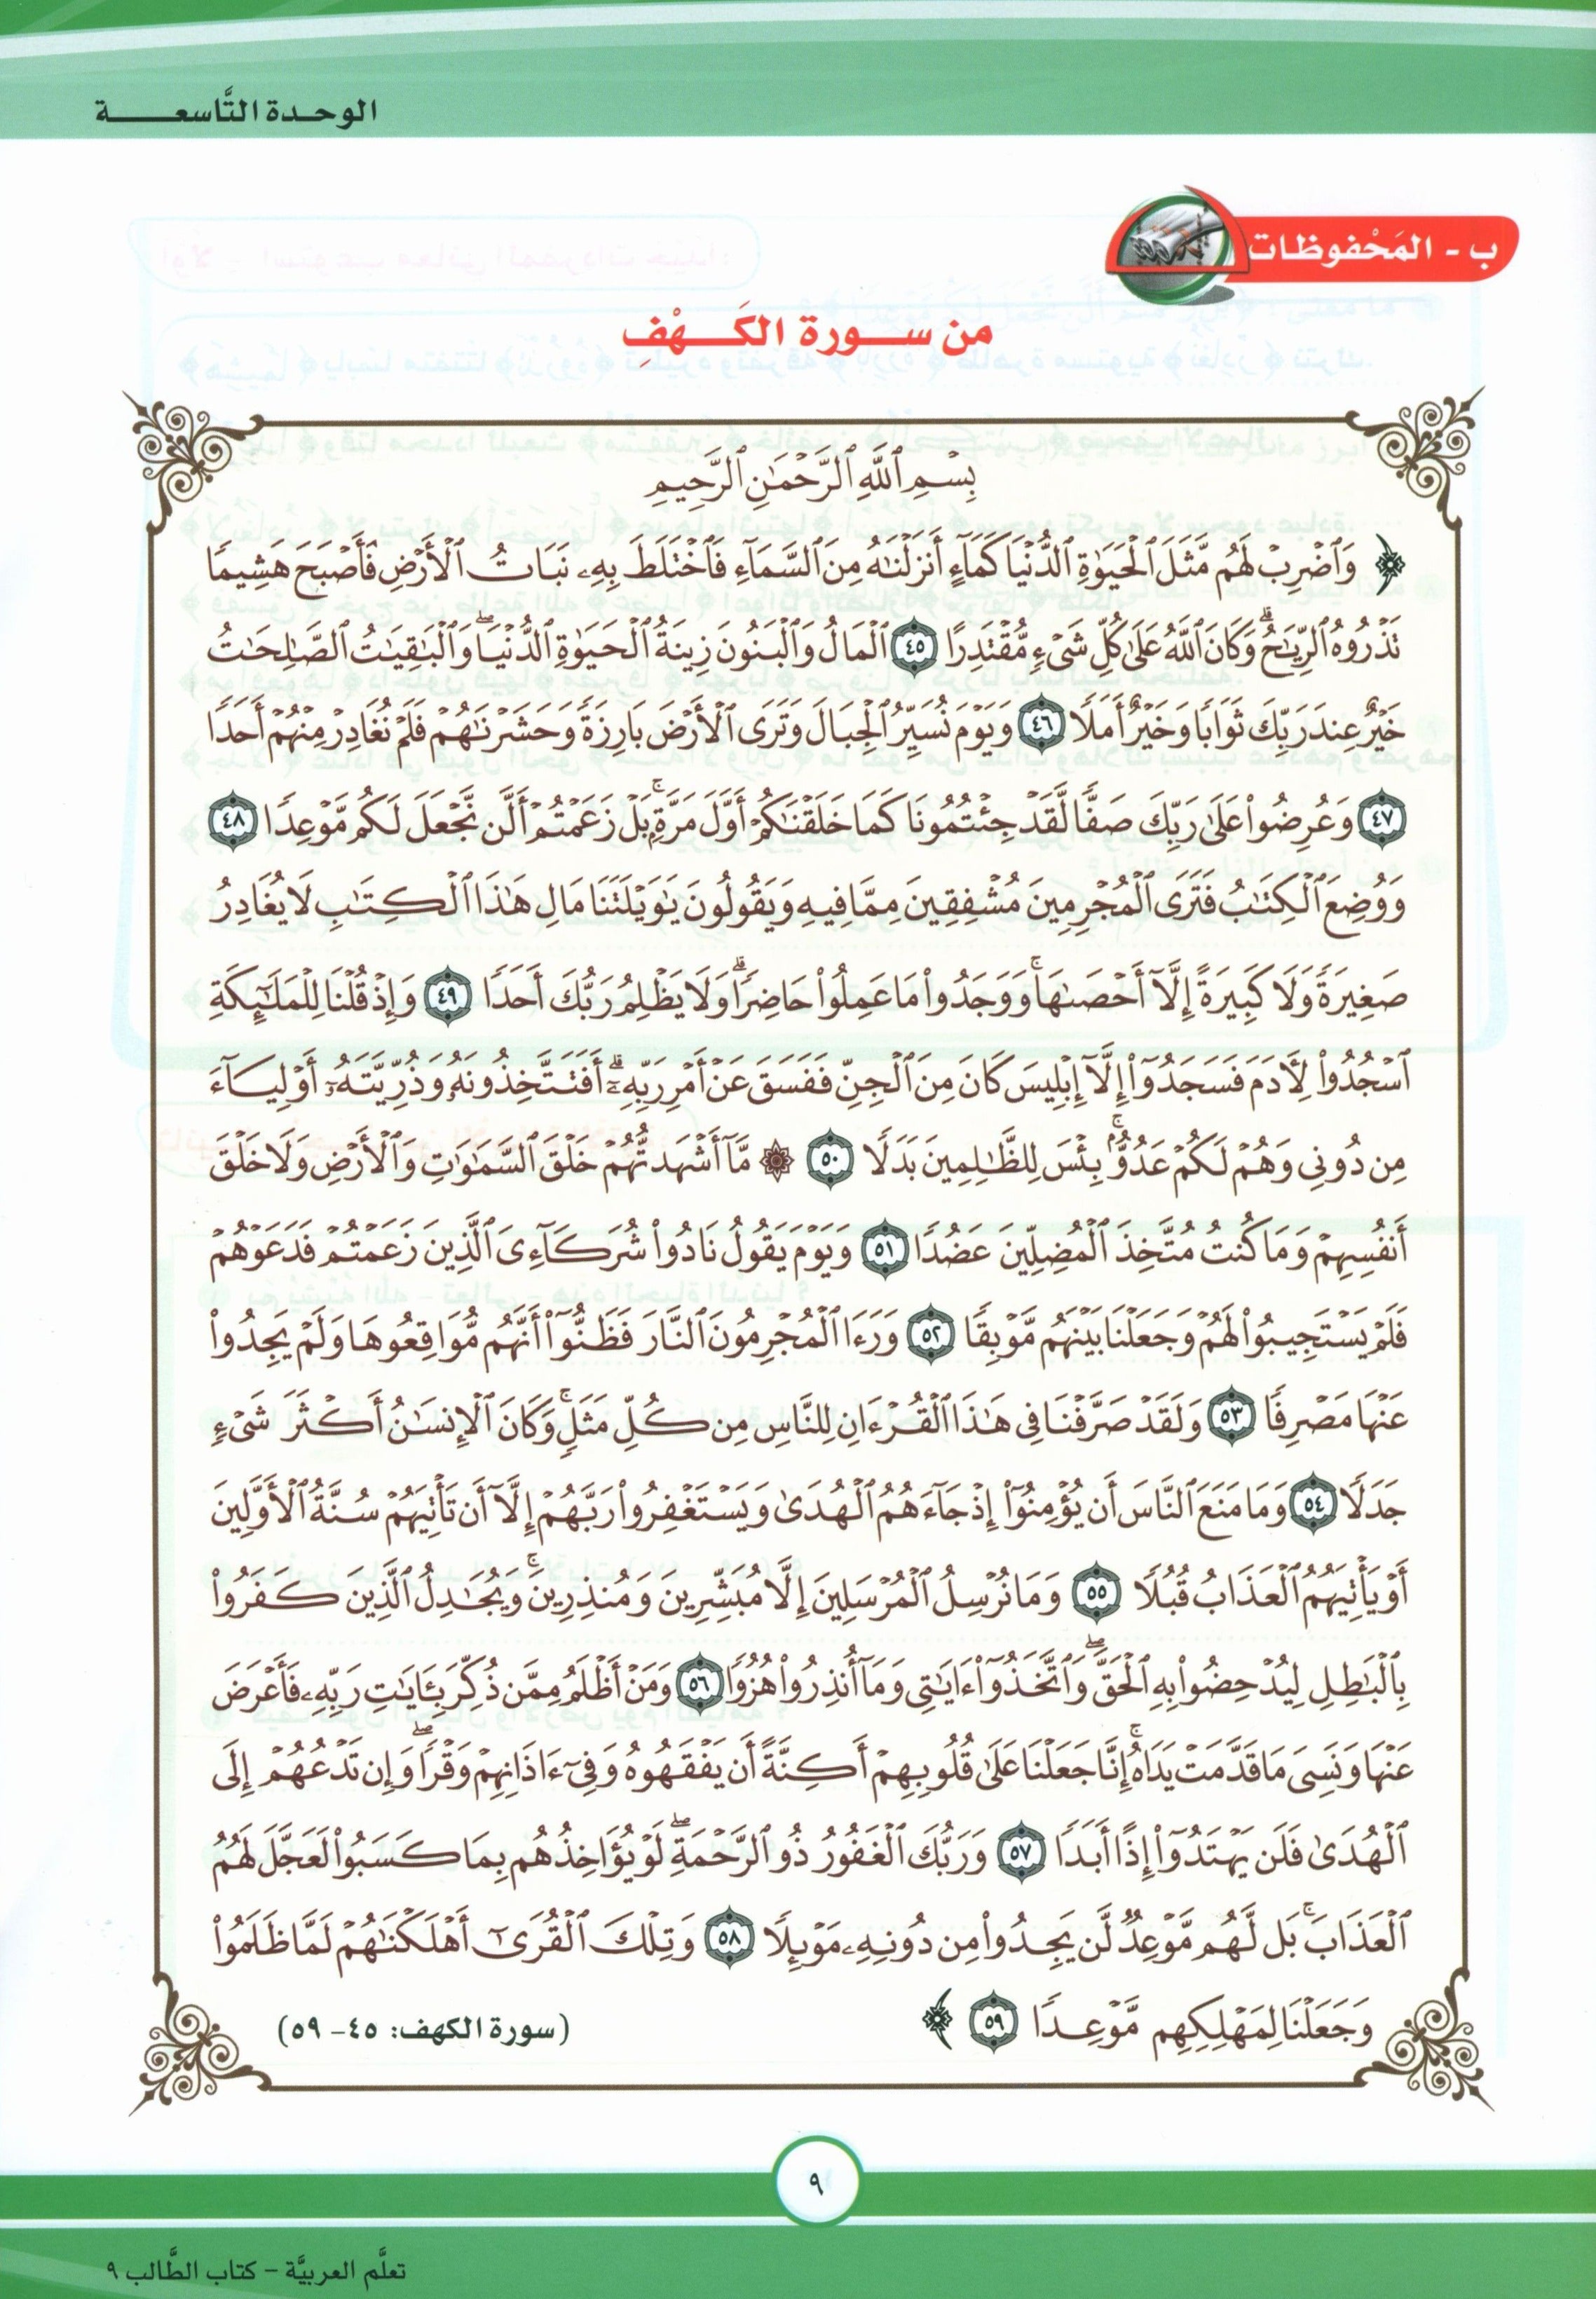 الوحـدة التَّاسعــــــة
ب - المَحْفوظات
من ســـورة الكَـــهْفِ
بِسْمِ ٱللَّهِ ٱلرَّحْمَٰنِ ٱلرَّحِيمِ
﴿ وَٱضْرِبْ لَهُم مَّثَلَ ٱلْحَيَوٰةِ ٱلدُّنْيَا كَمَآءٍ أَنزَلْنَٰهُ مِنَ ٱلسَّمَآءِ فَٱخْتَلَطَ بِهِۦ نَبَاتُ ٱلْأَرْضِ فَأَصْبَحَ هَشِيمًا
تَذْرُوهُ ٱلرِّيَٰحُ ۗ وَكَانَ ٱللَّهُ عَلَىٰ كُلِّ شَىْءٍ مُّقْتَدِرًا ٤٥ ٱلْمَالُ وَٱلْبَنُونَ زِينَةُ ٱلْحَيَوٰةِ ٱلدُّنْيَا ۖ وَٱلْبَٰقِيَٰتُ ٱلصَّٰلِحَٰتُ
خَيْرٌ عِندَ رَبِّكَ ثَوَابًا وَخَيْرٌ أَمَلًا ٤٦ وَيَوْمَ نُسَيِّرُ ٱلْجِبَالَ وَتَرَى ٱلْأَرْضَ بَارِزَةً وَحَشَرْنَٰهُمْ فَلَمْ نُغَادِرْ مِنْهُمْ أَحَدًا
٤٧ وَعُرِضُوا۟ عَلَىٰ رَبِّكَ صَفًّا لَّقَدْ جِئْتُمُونَا كَمَا خَلَقْنَٰكُمْ أَوَّلَ مَرَّةٍۭ ۚ بَلْ زَعَمْتُمْ أَلَّن نَّجْعَلَ لَكُم مَّوْعِدًا ٤٨
وَوُضِعَ ٱلْكِتَٰبُ فَتَرَى ٱلْمُجْرِمِينَ مُشْفِقِينَ مِمَّا فِيهِ وَيَقُولُونَ يَٰوَيْلَتَنَا مَالِ هَٰذَا ٱلْكِتَٰبِ لَا يُغَادِرُ
صَغِيرَةً وَلَا كَبِيرَةً إِلَّآ أَحْصَىٰهَا ۚ وَوَجَدُوا۟ مَا عَمِلُوا۟ حَاضِرًا ۗ وَلَا يَظْلِمُ رَبُّكَ أَحَدًا ٤٩ وَإِذْ قُلْنَا لِلْمَلَٰٓئِكَةِ
ٱسْجُدُوا۟ لِءَادَمَ فَسَجَدُوٓا۟ إِلَّآ إِبْلِيسَ كَانَ مِنَ ٱلْجِنِّ فَفَسَقَ عَنْ أَمْرِ رَبِّهِۦٓ ۗ أَفَتَتَّخِذُونَهُۥ وَذُرِّيَّتَهُۥٓ أَوْلِيَآءَ
مِن دُونِى وَهُمْ لَكُمْ عَدُوٌّۢ ۚ بِئْسَ لِلظَّٰلِمِينَ بَدَلًا ٥٠ ۞ مَّآ أَشْهَدتُّهُمْ خَلْقَ ٱلسَّمَٰوَٰتِ وَٱلْأَرْضِ وَلَا خَلْقَ
أَنفُسِهِمْ وَمَا كُنتُ مُتَّخِذَ ٱلْمُضِلِّينَ عَضُدًا ٥١ وَيَوْمَ يَقُولُ نَادُوا۟ شُرَكَآءِىَ ٱلَّذِينَ زَعَمْتُمْ فَدَعَوْهُمْ
فَلَمْ يَسْتَجِيبُوا۟ لَهُمْ وَجَعَلْنَا بَيْنَهُم مَّوْبِقًا ٥٢ وَرَءَا ٱلْمُجْرِمُونَ ٱلنَّارَ فَظَنُّوٓا۟ أَنَّهُم مُّوَاقِعُوهَا وَلَمْ يَجِدُوا۟
عَنْهَا مَصْرِفًا ٥٣ وَلَقَدْ صَرَّفْنَا فِى هَٰذَا ٱلْقُرْءَانِ لِلنَّاسِ مِن كُلِّ مَثَلٍ ۚ وَكَانَ ٱلْإِنسَٰنُ أَكْثَرَ شَىْءٍ
جَدَلًا ٥٤ وَمَا مَنَعَ ٱلنَّاسَ أَن يُؤْمِنُوٓا۟ إِذْ جَآءَهُمُ ٱلْهُدَىٰ وَيَسْتَغْفِرُوا۟ رَبَّهُمْ إِلَّآ أَن تَأْتِيَهُمْ سُنَّةُ ٱلْأَوَّلِينَ
أَوْ يَأْتِيَهُمُ ٱلْعَذَابُ قُبُلًا ٥٥ وَمَا نُرْسِلُ ٱلْمُرْسَلِينَ إِلَّا مُبَشِّرِينَ وَمُنذِرِينَ ۚ وَيُجَٰدِلُ ٱلَّذِينَ كَفَرُوا۟
بِٱلْبَٰطِلِ لِيُدْحِضُوا۟ بِهِ ٱلْحَقَّ ۖ وَٱتَّخَذُوٓا۟ ءَايَٰتِى وَمَآ أُنذِرُوا۟ هُزُوًا ٥٦ وَمَنْ أَظْلَمُ مِمَّن ذُكِّرَ بِـَٔايَٰتِ رَبِّهِۦ فَأَعْرَضَ
عَنْهَا وَنَسِىَ مَا قَدَّمَتْ يَدَاهُ ۚ إِنَّا جَعَلْنَا عَلَىٰ قُلُوبِهِمْ أَكِنَّةً أَن يَفْقَهُوهُ وَفِىٓ ءَاذَانِهِمْ وَقْرًا ۖ وَإِن تَدْعُهُمْ إِلَى
ٱلْهُدَىٰ فَلَن يَهْتَدُوٓا۟ إِذًا أَبَدًا ٥٧ وَرَبُّكَ ٱلْغَفُورُ ذُو ٱلرَّحْمَةِ ۖ لَوْ يُؤَاخِذُهُم بِمَا كَسَبُوا۟ لَعَجَّلَ لَهُمُ
ٱلْعَذَابَ ۚ بَل لَّهُم مَّوْعِدٌ لَّن يَجِدُوا۟ مِن دُونِهِۦ مَوْئِلًا ٥٨ وَتِلْكَ ٱلْقُرَىٰٓ أَهْلَكْنَٰهُمْ لَمَّا ظَلَمُوا۟
وَجَعَلْنَا لِمَهْلِكِهِم مَّوْعِدًا ٥٩ ﴾ (سورة الكهف: ٤٥- ٥٩)
٩
تعلَّم العربيَّة - كتاب الطَّالب ٩